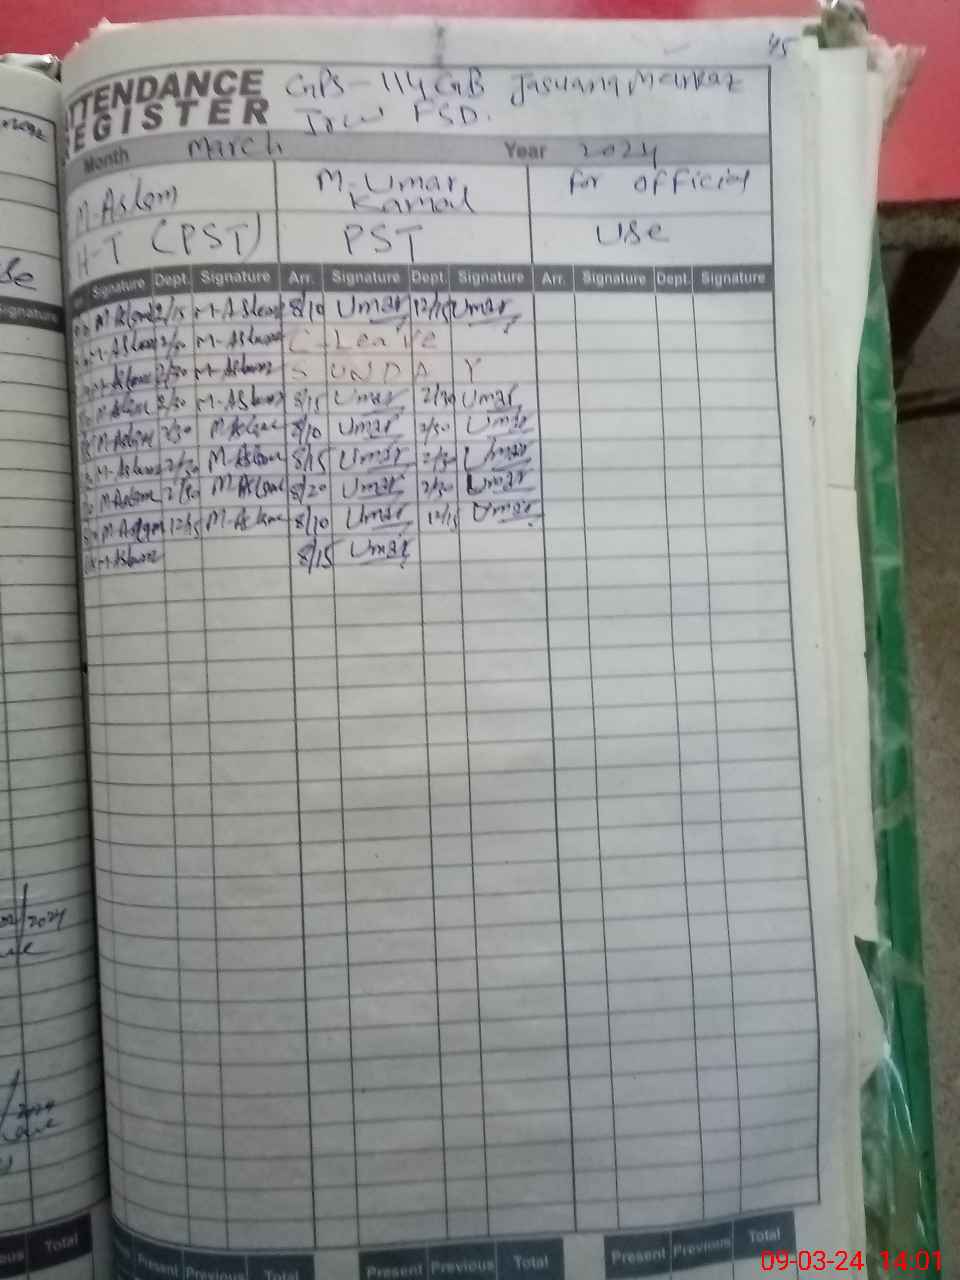 45
ATTENDANCE REGISTER
GPS-114 GB Jasuana Markaz
FSD.
Month March Year 2024
M-Aslam M-Umar Kamal For official
H-T (PST) PST use
Signature Dept. Signature Arr. Signature Dept. Signature Arr. Signature Dept. Signature
M-Aslam 2/15 M-Aslam 8/10 Umar 12/15 Umar
M-Aslam M-Aslam C-Leave
M-Aslam 2/30 M-Aslam S U N D A Y
M-Aslam 2/30 M-Aslam 8/15 Umar 2/30 Umar
M-Aslam 2/30 M-Aslam 8/10 Umar 2/30 Umar
M-Aslam 2/30 M-Aslam 8/15 Umar 2/30 Umar
M-Aslam 2/30 M-Aslam 8/20 Umar 2/30 Umar
M-Aslam 12/15 M-Aslam 8/10 Umar 12/15 Umar
M-Aslam 8/15 Umar
Total Present Previous Total Present Previous Total Present Previous Total
09-03-24 14:01